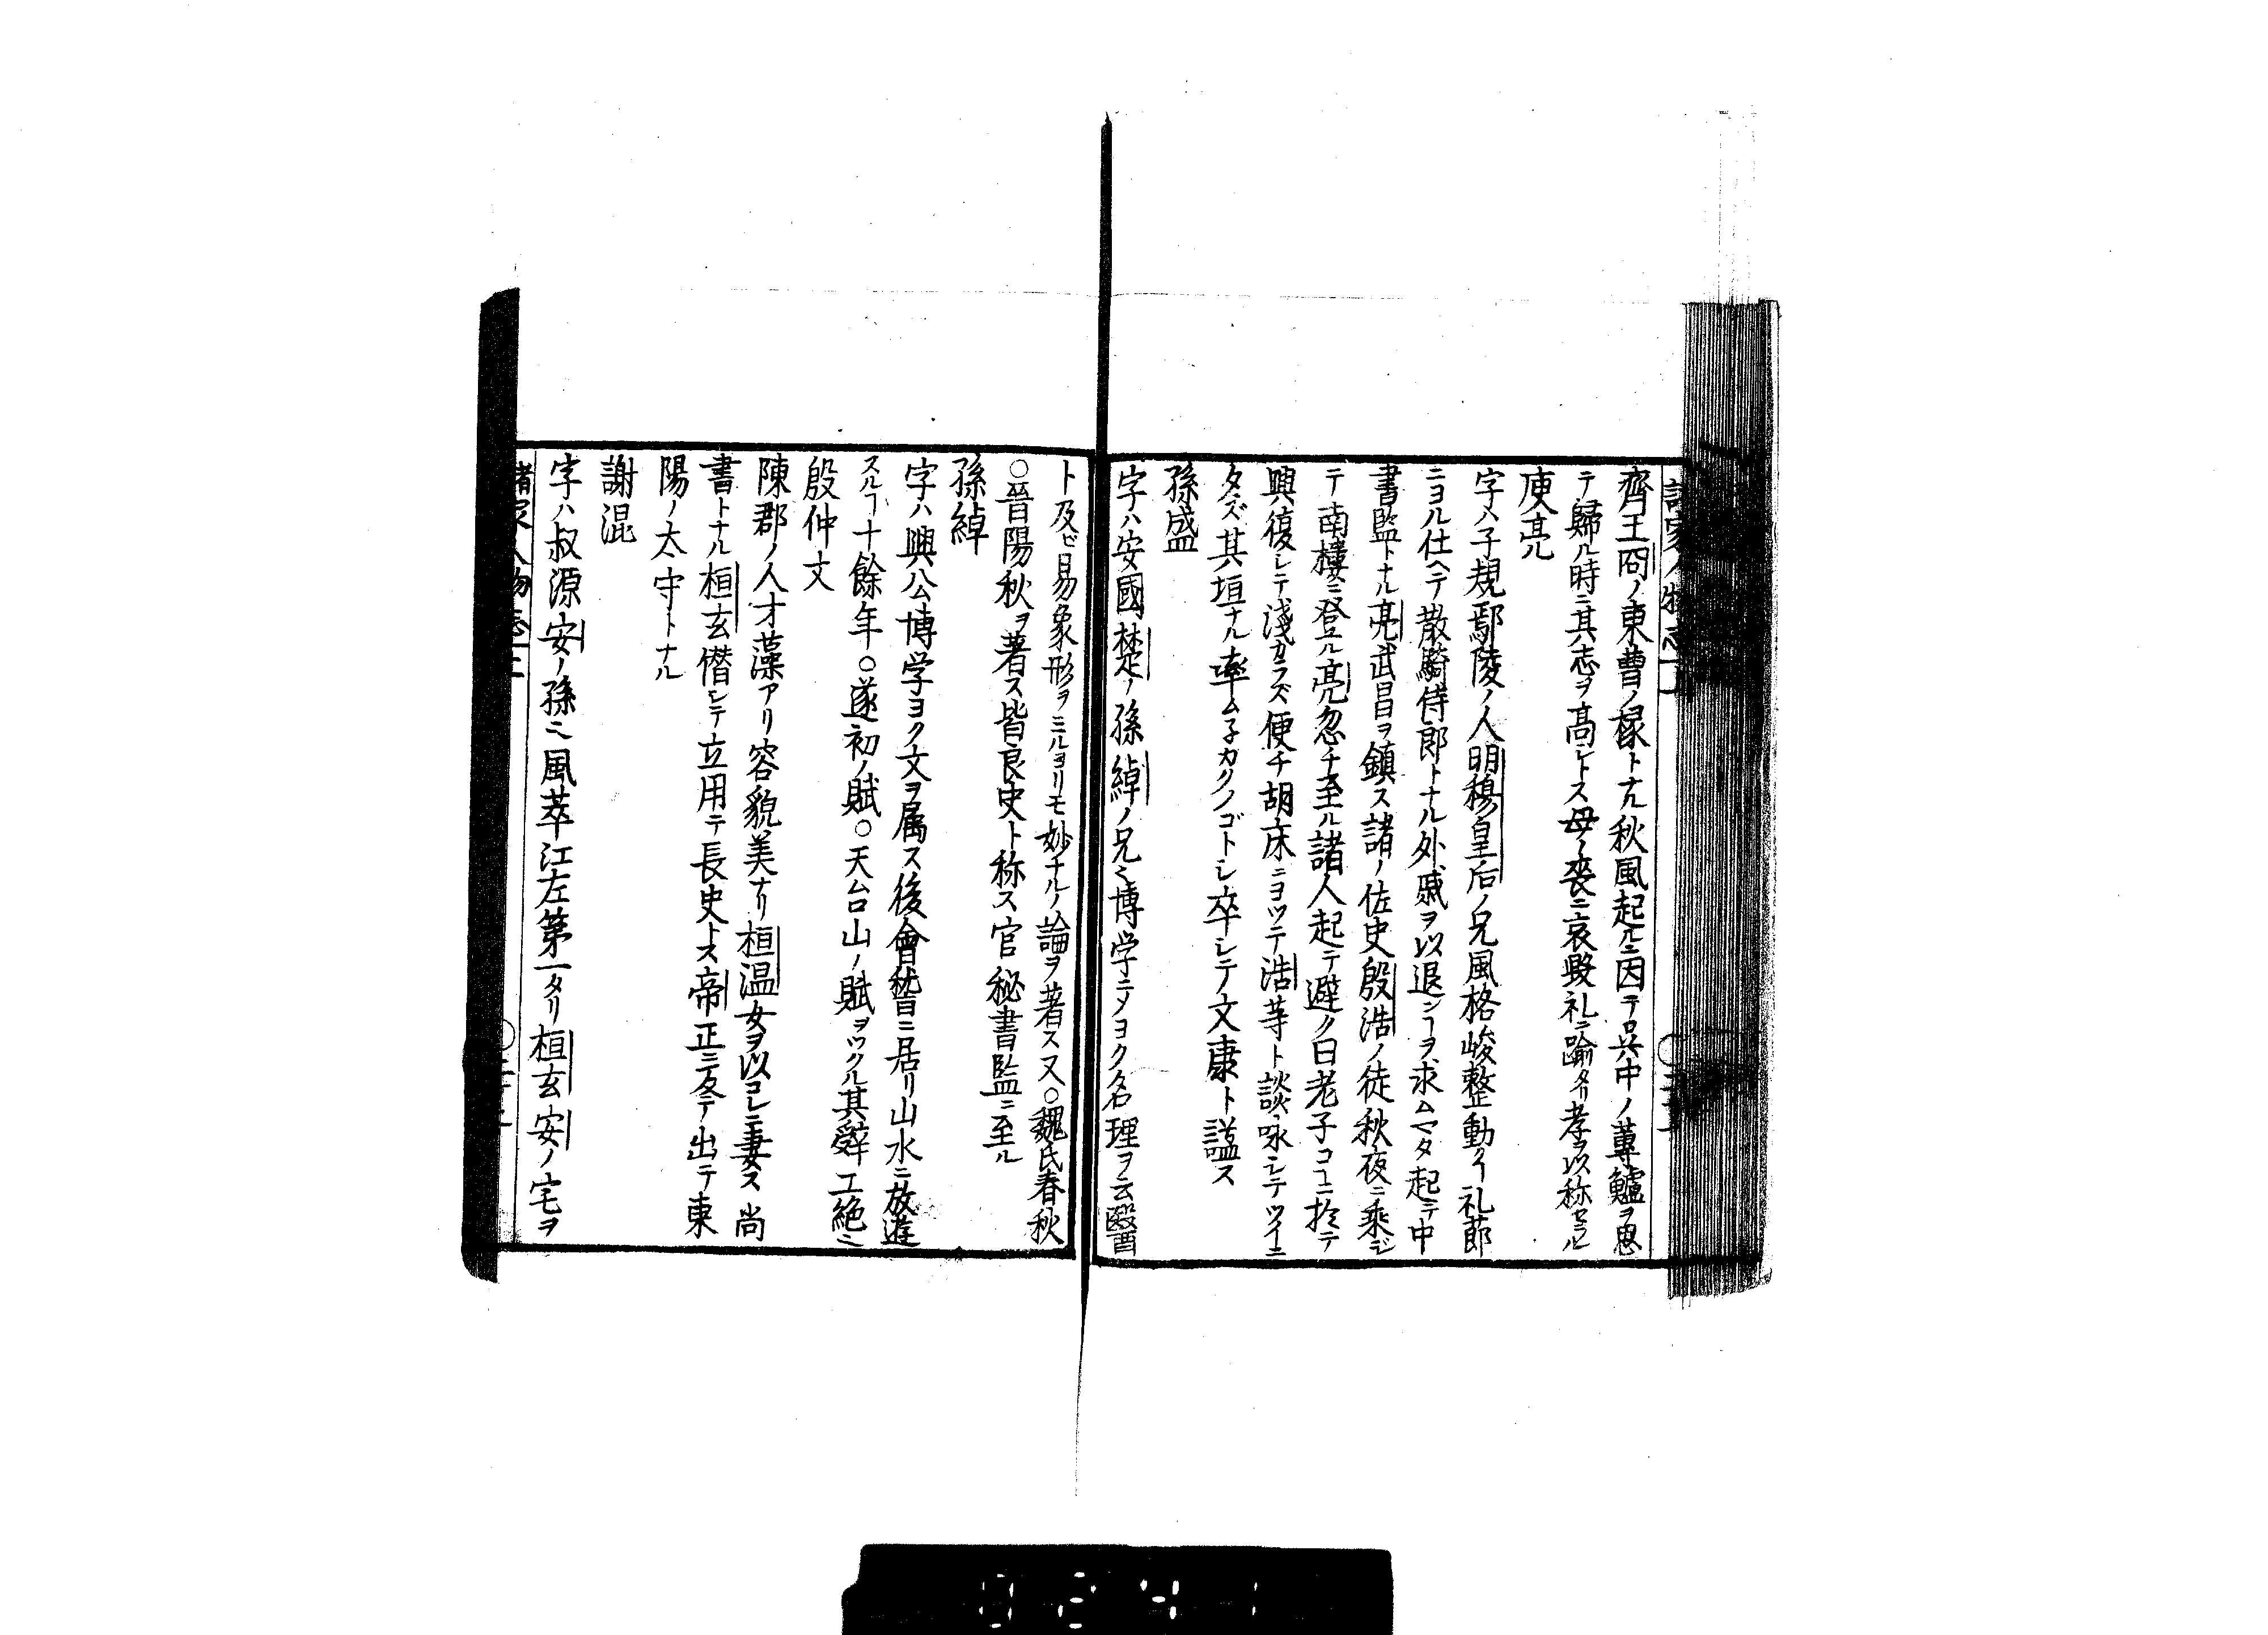 齊王冏ノ東曹ノ掾トナル秋風起ルニ因テ呉中ノ蓴鱸ヲ思
テ歸ル時ニ其志ヲ高シトス母ノ喪ニ哀毀礼ニ踰タリ孝ヲ以称セラル
庾亮
字ハ子規鄢陵ノ人明穆皇后ノ兄風格峻整動ク礼節
ニヨル仕ヘテ散騎侍郎トナル外戚ヲ以退ンヿヲ求ムマタ起テ中
書監トナル亮武昌ヲ鎮ス諸ノ佐史殷浩ノ徒秋夜ニ乘ジ
テ南樓ニ登ル亮忽チ至ル諸人起テ避ク曰老子コヽニ於テ
興復シテ淺カラズ便チ胡床ニヨツテ浩等ト談咏シテツイニ
タズ其垣ナル率ムネカクノゴトシ卒シテ文康ト謚ス
孫盛
字ハ安國楚ノ孫綽ノ兄也博学ニメヨク名理ヲ云醫
ト及ビ易象形ヲミルヨリモ妙ナルノ論ヲ著ス又○魏氏春秋
○晉陽秋ヲ著ス皆良史ト称ス官秘書監ニ至ル
孫綽
字ハ興公博学ヨク文ヲ属ス後會稽ニ居リ山水ニ放遊
スルヿ十餘年○遂初ノ賦○天台山ノ賦ヲツクル其辭工絶也
殷仲文
陳郡ノ人才藻アリ容貌美ナリ桓温女ヲ以コレニ妻ス尚
書トナル桓玄僭シテ立用テ長史トス帝正ニ反テ出テ東
陽ノ太守トナル
謝混
字ハ叔源安ノ孫也風華江左第一タリ桓玄安ノ宅ヲ
諸家人物志